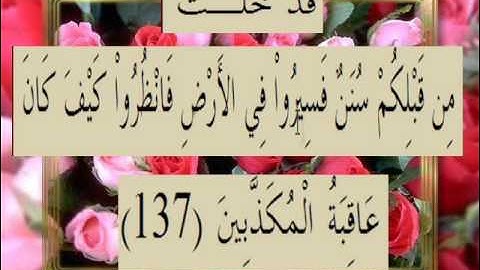 قَدْ خَلَــتْ
مِن قَبْلِكُمْ سُنَنٌ فَسِيرُواْ فِي الأَرْضِ فَانْظُرُواْ كَيْفَ كَانَ
عَاقِبَةُ الْمُكَذَّبِينَ (137)